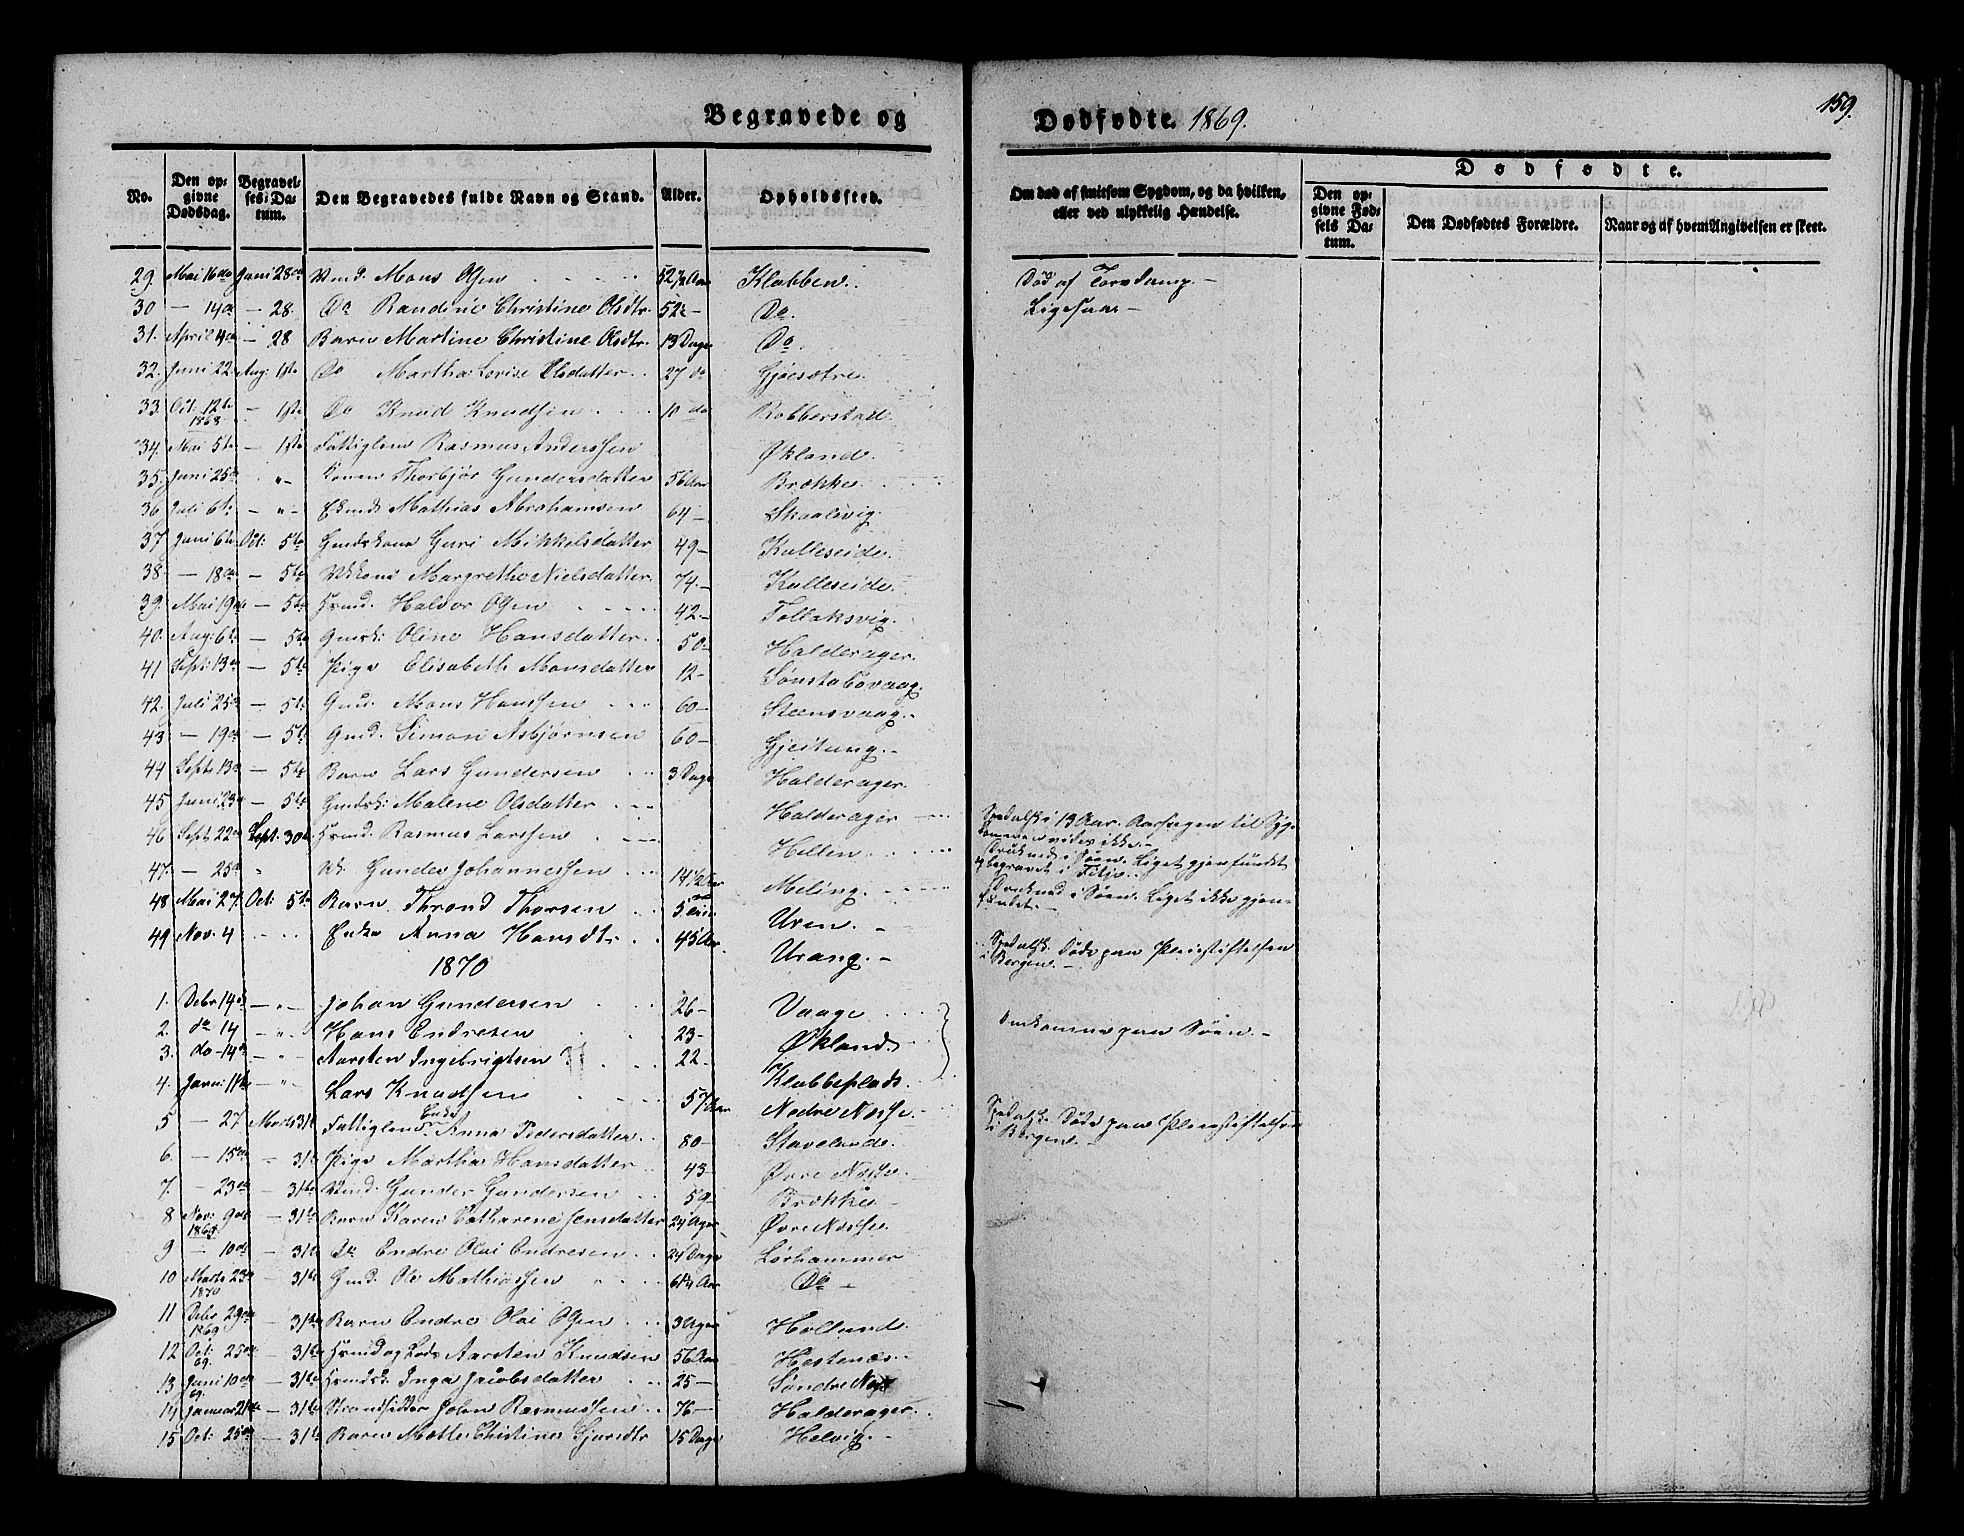 Begravede og Dødfødte. 1869.
159.
No. Den opgivne Dødsdag. Begravelses Datum. Den Begravedes fulde Navn og Stand. Alder. Opholdssted. Om død af smitsom Sygdom, og da hvilken, eller ved ulykkelig Hændelse. Dødfødte. Den opgivne Fødsels Datum. Den Dødfødtes Forældre. Naar og af hvem Angivelsen er skeet.
29. Mai 16de Juni 28de Mons Olsen 52½ Aar Klubben. Død af Torvdamp.-
30 - 14de - 28. Do Randine Christine Olsdtr. 52- Do. Ligesaa-
31. April 4de - 28 Barn Martine Christine Olsdtr. 13 Dage Do.
32. Juni 22 Aug: 1ste Do Martha Lovise Olsdatter 27 do Gjøesætre.
33. Oct. 12te 1868 - 1ste Do Knud Knudsen 10 do Robberstad.
34. Mai 5te - 1ste Fattiglem Rasmus Anderssen Økland.
35. Juni 25de " - Konen Thorbjør Gundersdatter 56 Aar Brække.
36 Juli 6te - " - Mathias Abrahamsen 64- Skaalevig.
37 Juni 6te Oct: 5te Guri Mikkelsdatter 49- Kulleseide.
38. - 18de - 5te Margrethe Nielsdatter. 74.- Kulleseide.
39. Mai 19de - 5te Huusmd. Halvor Olsen 42- Follaksvig.
40. Aug: 6te - 5te Oline Hansdatter. 50- Halderager.
41 Sept: 13de - 5te Pige Elisabeth Monsdatter 12- Sønstabøvaag.
42. Juli 25de - 5te Mons Hanssen 60- Steensvaag.-
43 - 19de - 5te Gmd. Simon Asbjørnsen 60- Gjeitung.-
44 Sept: 13de - 5te Barn Lars Gundersen 3 Dage Halderager.
45 Juni 23de - 5te Malene Olsdatter Halderager Spedalsk i 13 Aar. Aarsagen til Sygdommen vides ikke.-
46 Sept: 22de Sept: 30te Rasmus Larssen Hellen Druknede i Søen. Liget gjenfundet og begravet i Fitje.
47. - 25de " Gunder Johannessen 14½ Aar Meling. Druknede i Søen. Liget ikke gjenfundet.-
48 Mai 27. Oct: 5te Barn Thrond Thorsen 5 Uren.-
49 Nov. 4 Enke Anna Hansdtr. 45 Aar Urang.- Spedalsk. Døde paa Pleiestiftelsen i Bergen.-
1870
1. Debr 14de - " - Johan Gundersen 26- Vaage
2. do 14 - " - Hans Endresen 23- Økland Omkomne paa Søen.-
3. do - 14de - " - Aarsten Ingebrigtsen 22- Klubbeplads.
4. Janu: 11te - " - Lars Knudsen 57 Aar Nedre Nesse.- Spedalsk. Døde paa Pleiestiftelsen i Bergen.-
5 - 27 Marts 31te Fattiglem Enke Anna Pedersdatter 80- Stavelands.
6. - 15de " 31te Pige Martha Hansdatter 43- Øvre Nesse.
7. - 23de - 31te Gunder Gundersen 59- Brække-
8 Nov: 9de 1869. - 31te Barn Karen Catharene Jensdatter 24 Uger Øvre Nesse.
9 - 10de - 31te Do Endre Olai Endresen 24 Dage Lørhammer
10 Marts 23de 1870 - 31te Gmd. Ole Mathiassen 61¾ Aar Do -
11 Debr 29de 1869 - 31te Barn Endre Olai Olsen 3 Uger Hollund.
12 Oct: 69. 25de - 31te Huusmd og Lods Aarsten Knudsen 56 Aar Hestenæs.-
13 Juni 69. 10de - 31te Inga Jacobsdatter 25- Søndre Nesse
14 Januar 21de - 31te Strandsidder John Rasmussen 76- Halderager.
15 Oct: 25de - 31te Barn Mætte Christine Gjersdtr 15 Dage Helvig.-